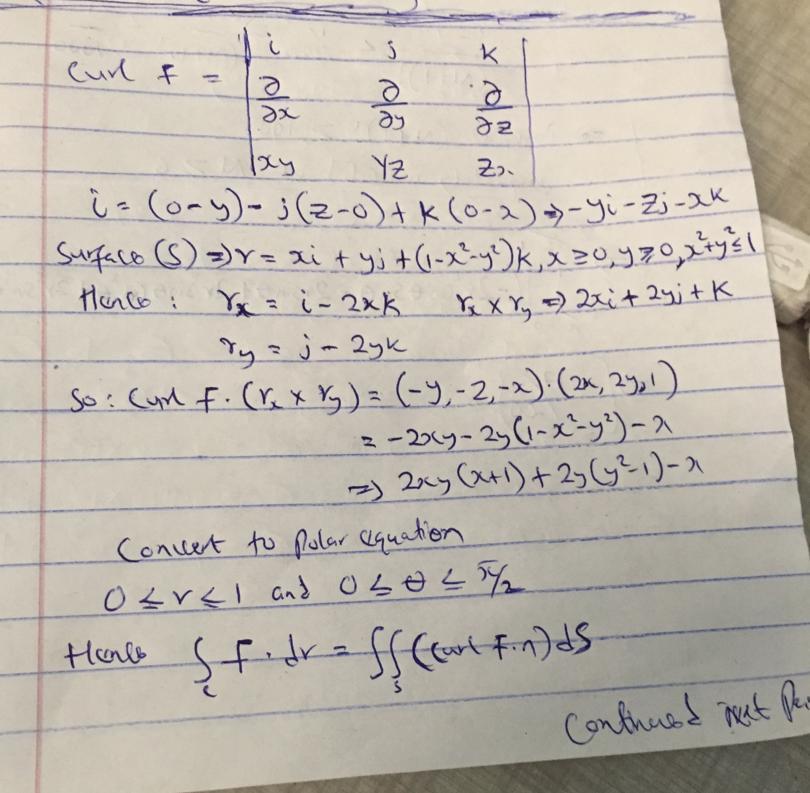 Curl F = | i j k |
| ∂/∂x ∂/∂y ∂/∂z |
| xy yz zx |
i = (0-y) - j(z-0) + k(0-x) => -yi - zj - xk
Surface (S) => r = xi + yj + (1-x²-y²)k, x ≥ 0, y ≥ 0, x²+y² ≤ 1
Hence : r_x = i - 2xk r_x × r_y => 2xi + 2yj + k
r_y = j - 2yk
So : Curl F. (r_x × r_y) = (-y, -z, -x)·(2x, 2y, 1)
= -2xy - 2y(1-x²-y²) - x
=> 2xy(x+1) + 2y(y²-1) - x
Convert to polar equation
0 ≤ r ≤ 1 and 0 ≤ θ ≤ π/2
Hence ∫_c F. dr = ∬_s (Curl F.n) dS
Continued next